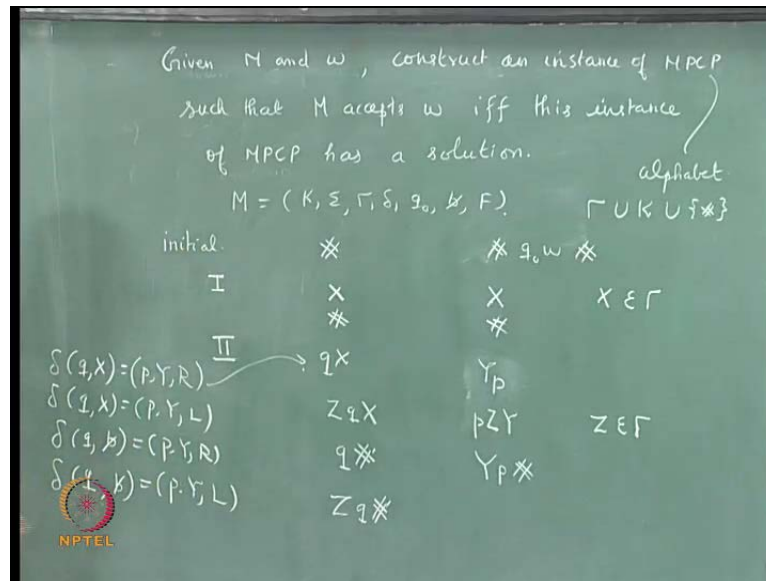 Given M and ω, construct an instance of MPCP
such that M accepts ω iff this instance
of MPCP has a solution.
alphabet
M = (K, Σ, Γ, δ, q₀, b̸, F).    Γ ∪ K ∪ {#}
initial.    #    # q₀ω #
I    X    X    X ε Γ
#    #
II
δ(q,X)=(P,Y,R)    qX    Yp
δ(q,X)=(P,Y,L)    ZqX    pZY    Z ε Γ
δ(q,b̸)=(P,Y,R)    q#    Yp#
δ(q,b̸)=(P,Y,L)    Zq#
NPTEL